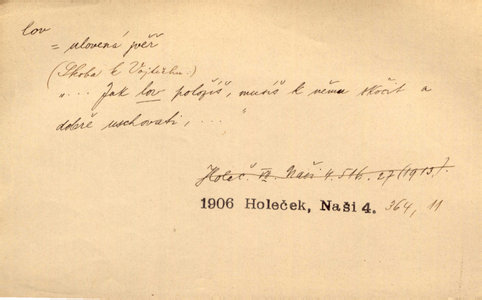 lov
= ulovená zvěř
(Škoba k Vojtěchu.)
„... Jak lov položíš, musíš k němu skočit a
dobře uschovati, ... "
Holeč. VI. Naši 4. str. 27 (1913).
1906 Holeček, Naši 4. 364, 11